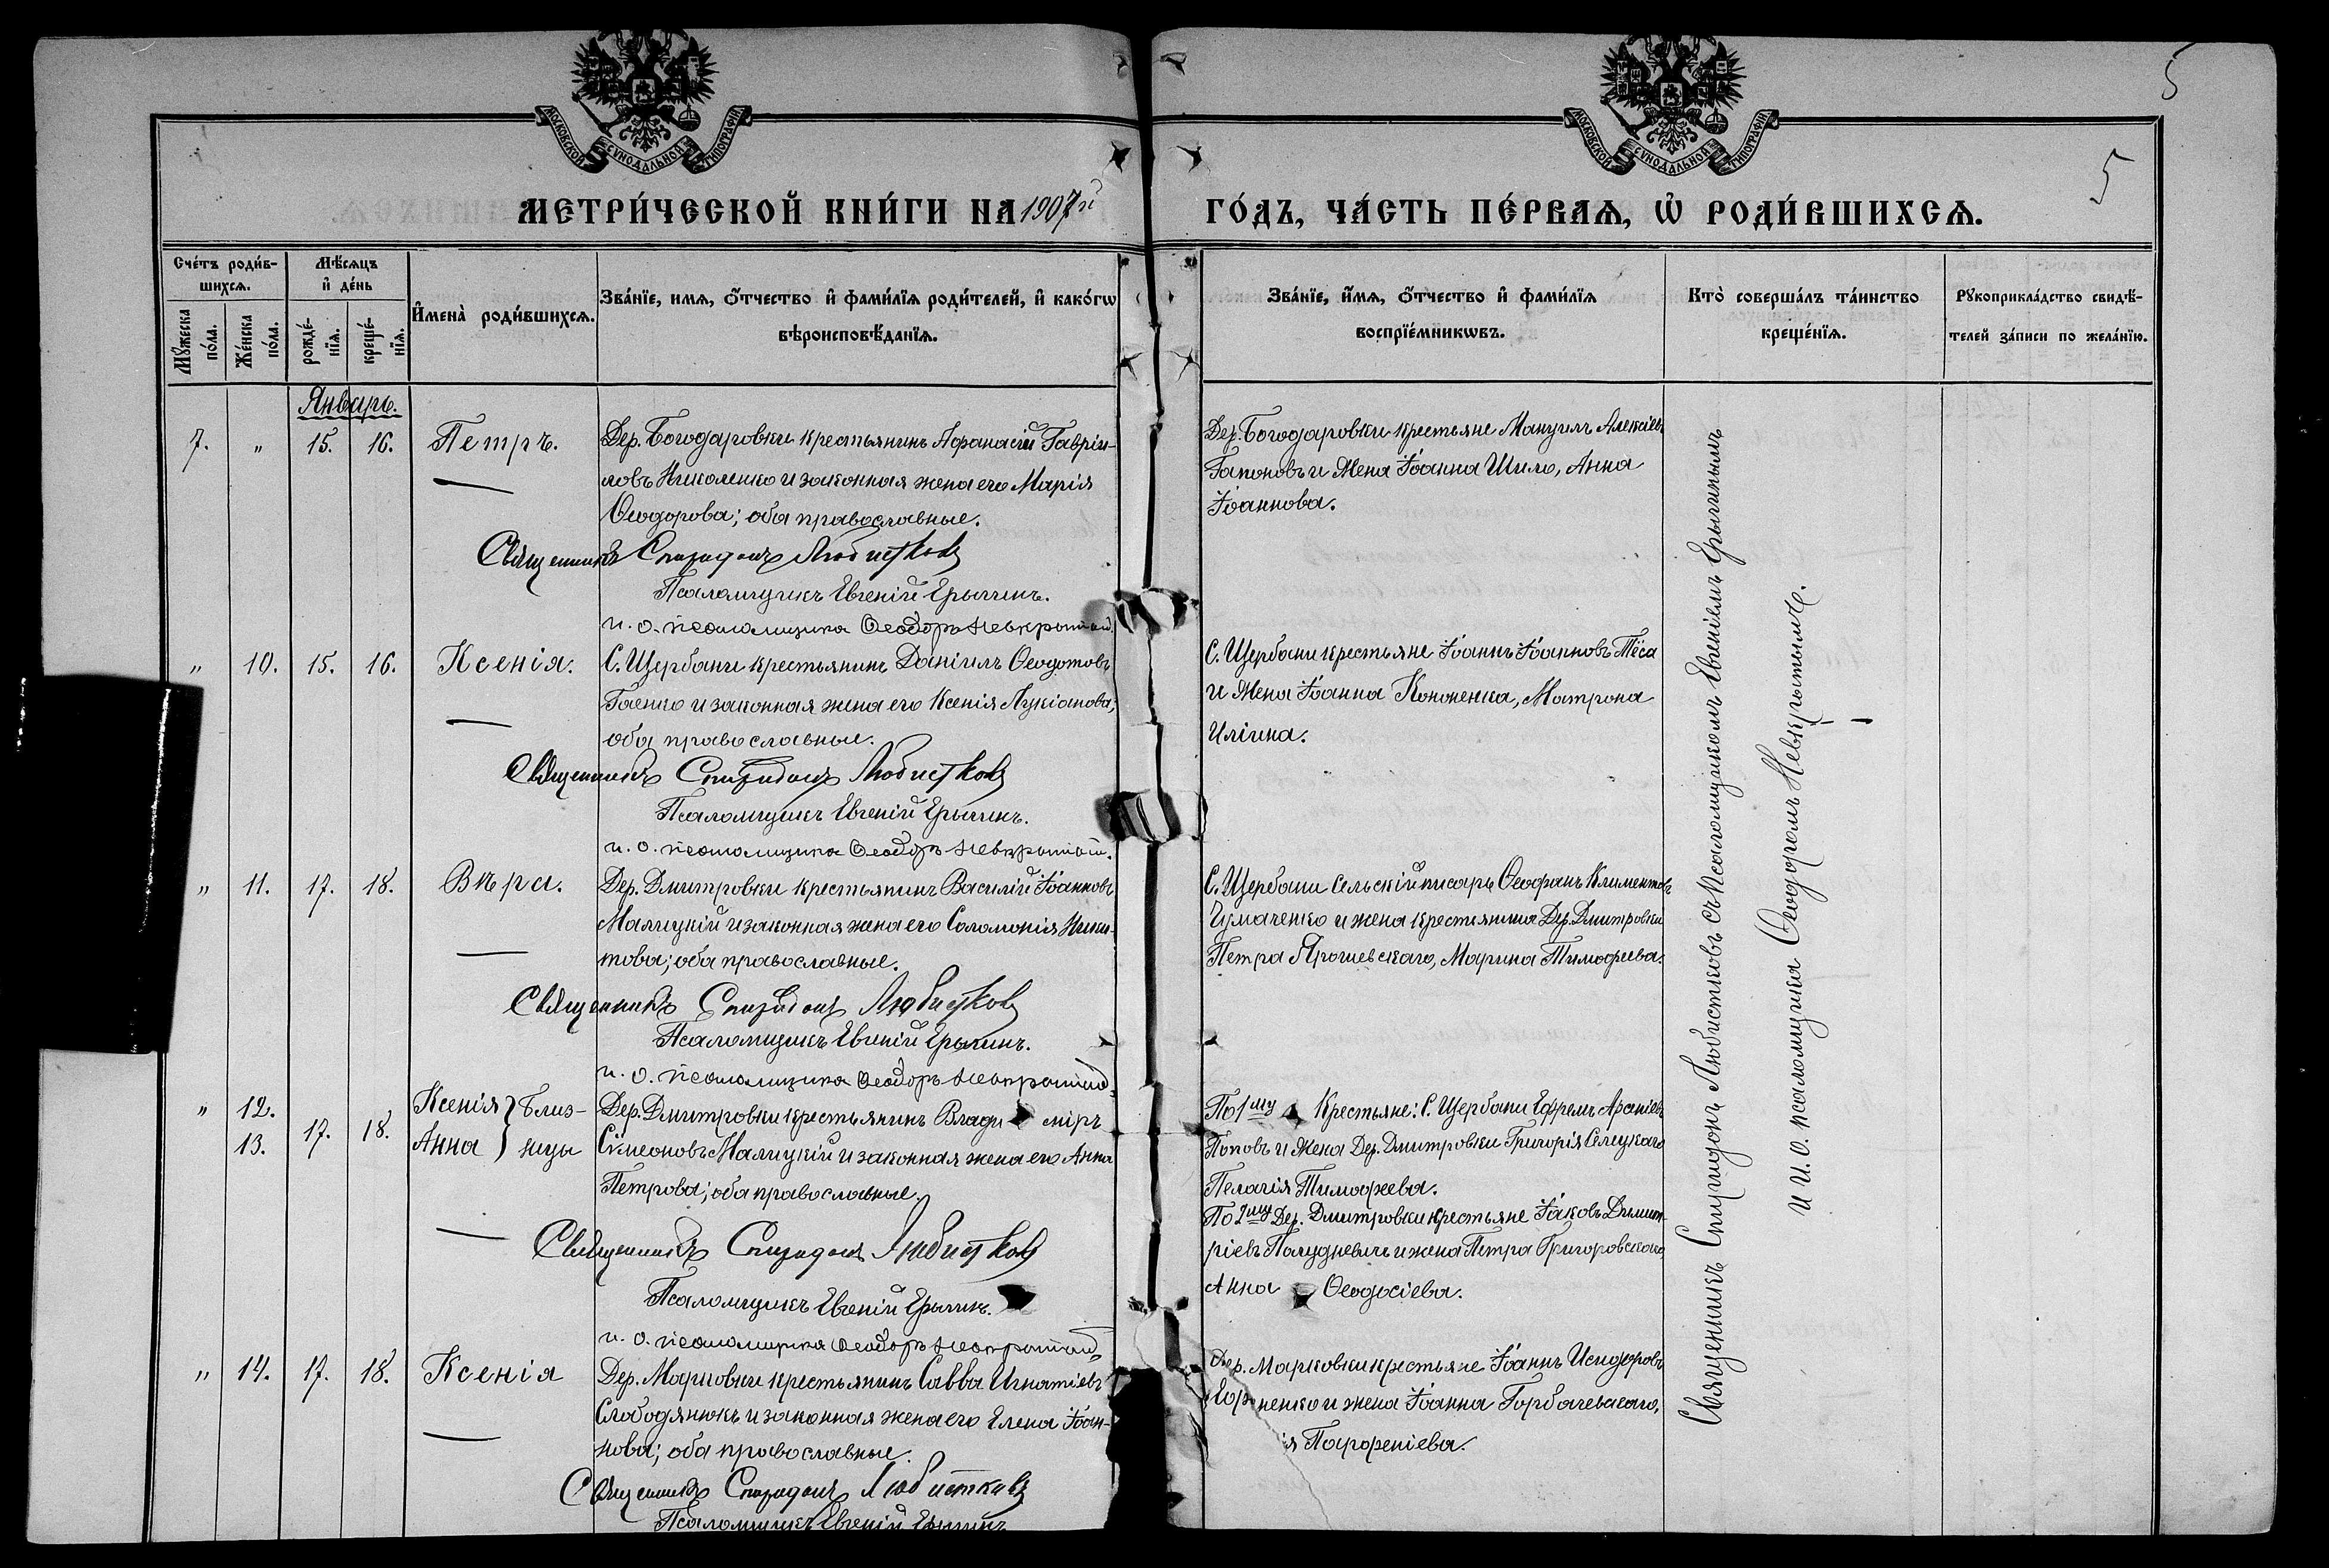 МОСКОВСКОЙ СУНОДАЛЬНОЙ ТИПОГРАФІИ
МОСКОВСКОЙ СУНОДАЛЬНОЙ ТИПОГРАФІИ
5
5
МЕТРИ́ЧЕСКОЙ КНИ́ГИ НА 1907й
ГО́ДЪ, ЧА́СТЬ ПЕ́РВАѦ, Ѡ҆ РОДИ́ВШИХСѦ.
Сче́тъ роди́в-
шихсѧ.
Мꙋ́жеска
по́ла.
Же́нска
по́ла.
Мѣ́сѧцъ
и҆ де́нь
рожде́-
нїѧ.
креще́-
нїѧ.
И҆мена̀ роди́вшихсѧ.
Зва́нїе, имѧ, ѻ҆́тчество и҆ фами́лїѧ роди́телей, и҆ како́гѡ
вѣроисповѣ́данїѧ.
Зва́нїе, и҆́мѧ, ѻ҆́тчество и҆ фами́лїѧ
воспрїе́мникѡвъ.
Кто̀ соверша́лъ та́инство
креще́нїѧ.
Рꙋкоприкла́дство свидѣ́-
телей за́писи по жела́нїю.
Январь.
7. " 15. 16. Петръ.
Дер. Богодаровки крестьянинъ Афанасій Гавріи-
ловъ Николенко и законная жена его Марія
Ѳеодорова; оба православные.
Священникъ Спиридонъ Любистковъ
Псаломщикъ Евгеній Ерыгинъ.
и. о. псаломщика Ѳеодоръ Невкрытый.
Дер. Богодаровки крестьяне Мануилъ Алексіевъ
Гапоновъ и Жена Іоанна Шило, Анна
Іоаннова.
" 10. 15. 16. Ксенія.
С. Щербани крестьянинъ Даніилъ Ѳеодотовъ
Гаенко и законная жена его Ксенія Лукіанова,
оба православные.
Священникъ Спиридонъ Любистковъ
Псаломщикъ Евгеній Ерыгинъ.
и. о. псаломщика Ѳеодоръ Невкрытый.
С. Щербани крестьяне Іоаннъ Іоанновъ Тёса
и Жена Іоанна Кононенка, Матрона
Иліина.
" 11. 17. 18. Вѣра.
Дер. Дмитровки крестьянинъ Василій Іоанновъ
Малицкій и законная жена его Соломонія Ники-
това; оба православные.
Священникъ Спиридонъ Любистковъ
Псаломщикъ Евгеній Ерыгинъ.
и. о. псаломщика Ѳеодоръ Невкрытый.
С. Щербани сельскій писарь Ѳеофанъ Климентовъ
Чумаченко и жена крестьянина Дер. Дмитровки
Петра Ярошевскаго, Марина Тимофеева.
" 12. 13. 17. 18. Ксенія Анна } Близ-
ницы
Дер. Дмитровки крестьянинъ Влади міръ
Сѵмеоновъ Малицкій и законная жена его Анна
Петрова; оба православные.
Священникъ Спиридонъ Любистковъ
Псаломщикъ Евгеній Ерыгинъ.
и. о. псаломщика Ѳеодоръ Невкрытый.
По 1му Крестьяне: С. Щербани Ефремъ
Поповъ и Жена Дер. Дмитровки Григорія Селецкаго
Пелагія Тимофеева.
По 2му Дер. Дмитровки крестьяне Іаковъ Димит-
ріевъ и жена Петра Григоровскаго,
Анна Ѳеодосіева.
" 14. 17. 18. Ксенія
Дер. Марковки крестьянинъ Савва Игнатіевъ
Слободянюкъ и законная жена его Елена Іоан-
нова; оба православные.
Священникъ Спиридонъ Любистковъ
Псаломщикъ Евгеній Ерыгинъ
Дер. Марковки крестьяне Іоаннъ Исидоровъ
ненко и жена Іоанна Горбачевскаго,
ія Парфеніева.
Священникъ Спиридонъ Любистковъ съ псаломщикомъ Евгеніемъ Ерыгинымъ
и И. О. псаломщика Ѳеодоромъ Невкрытымъ.